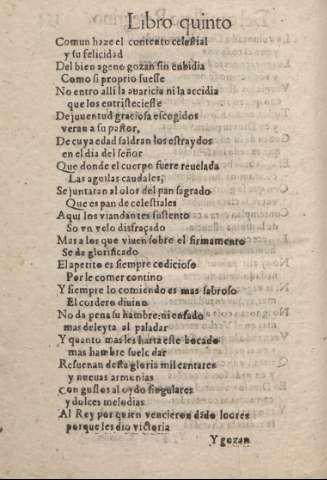 Libro quinto
Comun haze el contento celestial
y su felicidad
Del bien ageno gozan sin enbidia
Como si proprio fuesse
No entro alli la auaricia ni la accidia
que los entristeciesse
De juuentud graciosa escogidos
veran a su pastor,
De cuya edad saldran los estraydos
en el dia del señor
Que donde el cuerpo fuere reuelada
Las aguilas caudales,
Se juntaran al olor del pan sagrado
Que es pan de celestiales
Aqui los viandantes sustento
So vn velo disfraçado
Mas a los que viuen sobre el firmamento
Se da glorificado
El apetito es siempre codicioso
Por le comer contino
Y siempre lo comiendo es mas sabroso
El cordero diuino
No da pena su hambre, ni enfado
mas deleyta al paladar
Y quanto mas les harta este bocado
mas hambre suele dar
Resuenan desta gloria mil cantares
y nueuas armonias
con gustos al oydo singulares
y dulces melodias
Al Rey por quien vencieron dãdo loores
porque les dio victoria
Y gozan